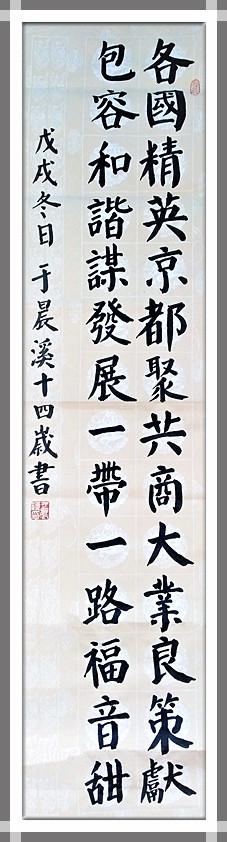 各國精英京都聚共商大業良策獻
包容和諧謀發展一帶一路福音甜
戊戌冬日于晨溪十四歲書